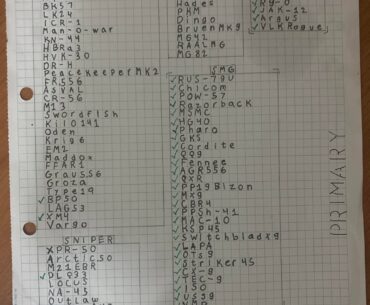 BK57
LK24
ICR-1
Man-o-war
KN-44
HBRa3
HVK-30
DR-H
PeacekeeperMK2
FR556
AsVAL
CR-56
M13
Swordfish
Kilo141
Oden
Krig6
EM2
Maddox
FFAR1
Grau556
Groza
Type19
BP50
LAG53
XM4
Vargo
SNIPER
XPR-50
Arctic50
M21EBR
DLQ33
LOCUS
NA-45
Outlaw
Hades
PKM
Dingo
BruenMK9
MG42
RAALMG
MG82
R9-0
JAK-12
Argus
VLKRogue
SMG
RUS-79U
Chicom
PDW-57
Razorback
MSMC
HG40
Pharo
GKS
Cordite
QQ9
Fennec
AGR556
QXR
PP19Bizon
MX9
CBR4
PPSh-41
MAC-10
KSP45
Switchblade X9
LAPA
OTs9
Striker45
CX-9
TEC-9
ISO
USS9
PRIMARY